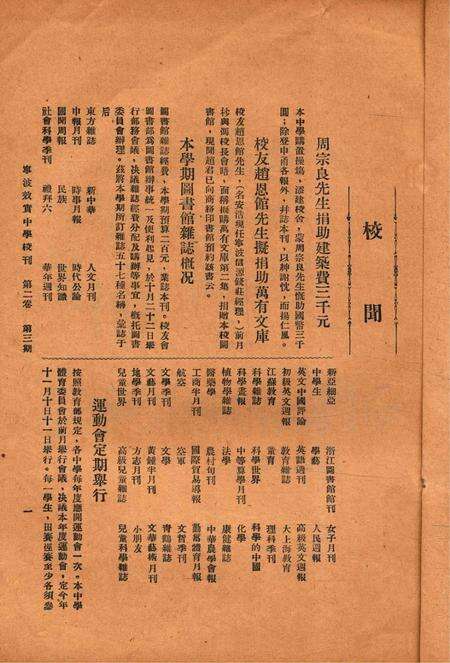 校聞
周宗良先生捐助建築費三千元
本中學購置操塲，添建校舍，蒙周宗良先生慨助國幣三千
圓；除登申甬各報外，幷誌本刊，以紳謝忱，而揚仁風。
校友趙恩綰先生擬捐助萬有文庫
校友趙恩綰先生，（名安浩現任寧波信源錢莊經理，）前月
抄與馮校長會晤，面稱擬購萬有文庫第二集，捐贈本校圖
書館，現聞趙君已向商務印書館預約該書云。
本學期圖書館雜誌槪况
圖書館雜誌經費，本學期預算二百元，業誌本刊。校友會
圖書部爲圖書館辦事統一及便利起見，於十月二十二日舉
行部務會議，决議雜誌經費分配及購辦等事宜，槪托圖書
委員會辦理。茲將本學期所訂雜誌五十七種名稱，彙誌于
后
東方雜誌 新中華 人文月刊
申報月刊 時事月報 時代公論
國聞周報 民族 世界知識
社會科學季刊 禮拜六 華年週刊
新亞細亞 浙江圖書館館刊 女子月刊
中學生 學藝 人民週報
英文中國評論 英語週刊 高級英文週報
初級英文週報 教育雜誌 大上海教育
江蘇教育 童育 理科季刊
科學雜誌 科學世界 科學的中國
科學畫報 中等算學月刊 化學
植物學雜誌 法學 康健雜誌
醫藥學 農村旬刊 中華農學會報
工商半月刊 國際貿易導報 勤奮體育月報
航空 空軍 文哲季刊
文學季刊 文學 靑鶴雜誌
文藝月刊 黃鍾半月刊 文華藝術月刊
地學季刊 方志月刊 小朋友
兒童世界 高級兒童雜誌 兒童科學雜誌
運動會定期舉行
按照敎育部規定，各中學每年度應開運動會一次。本中學
體育委員會於前月舉行會議，决議本年度運動會，定今年
十一月十日十一日舉行。每一學生，田賽徑賽至少各須參
寧波效實中學校刊 第二卷 第三期 一